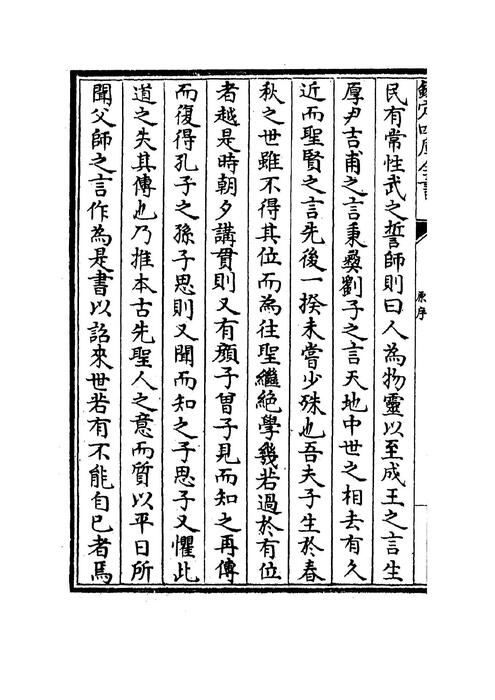 欽定四庫全書
原序
民有常性武之誓師則曰人為物靈以至成王之言生
厚尹吉甫之言秉彝劉子之言天地中世之相去有久
近而聖賢之言先後一揆未嘗少殊也吾夫子生於春
秋之世雖不得其位而為往聖繼絶學幾若過於有位
者越是時朝夕講貫則又有顔子曾子見而知之再傳
而復得孔子之孫子思則又聞而知之子思子又懼此
道之失其傳也乃推本古先聖人之意而質以平日所
聞父師之言作為是書以詔來世若有不能自已者焉